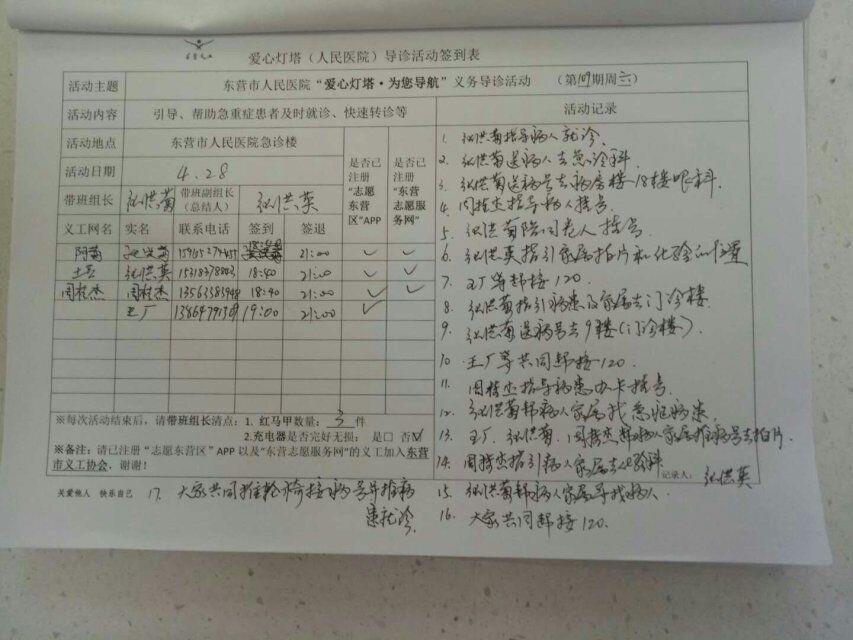 爱心灯塔（人民医院）导诊活动签到表
活动主题 东营市人民医院“爱心灯塔·为您导航”义务导诊活动 （第109期周六）
活动内容 引导、帮助急重症患者及时就诊、快速转诊等 活动记录
活动地点 东营市人民医院急诊楼
活动日期 4.28
是否已注册“志愿东营区”APP
是否已注册“东营志愿服务网”
带班组长 张洪菊 带班副组长（总结人） 张洪英
义工网名 实名 联系电话 签到 签退
阿菊 张洪菊 21:00 ✓ ✓
张洪英 18:40 21:00 ✓ ✓
周桂杰 周桂杰 18:40 21:00 ✓ ✓
王广 19:00 21:00 ✓
※每次活动结束后，请带班组长清点：1. 红马甲数量：3 件
2.充电器是否完好无损： 是□ 否☑
※备注：请已注册“志愿东营区”APP 以及“东营志愿服务网”的义工加入东营
市义工协会，谢谢！
关爱他人 快乐自己
1. 张洪菊指导病人就诊.
2. 张洪菊送病人去急诊科.
3. 张洪菊送病号去病房楼18楼眼科.
4. 周桂杰指导病人挂号.
5. 张洪菊陪同老人挂号.
6. 张洪英指引家属拍片和化验的位置
7. 王广等帮接120.
8. 张洪菊指引病患及家属去门诊楼.
9. 张洪菊送病号去9楼(门诊楼).
10. 王广等共同帮接120.
11. 周桂杰指导病患办卡挂号.
12. 张洪菊帮病人家属找急症病患.
13. 王广、张洪菊、周桂杰帮病人家属推病号去拍片.
14. 周桂杰指引病人家属去化验科
记录人：张洪英
15. 张洪菊帮病人家属寻找病人.
16. 大家共同帮接120.
17. 大家共同推轮椅接病号并推病
患就诊.